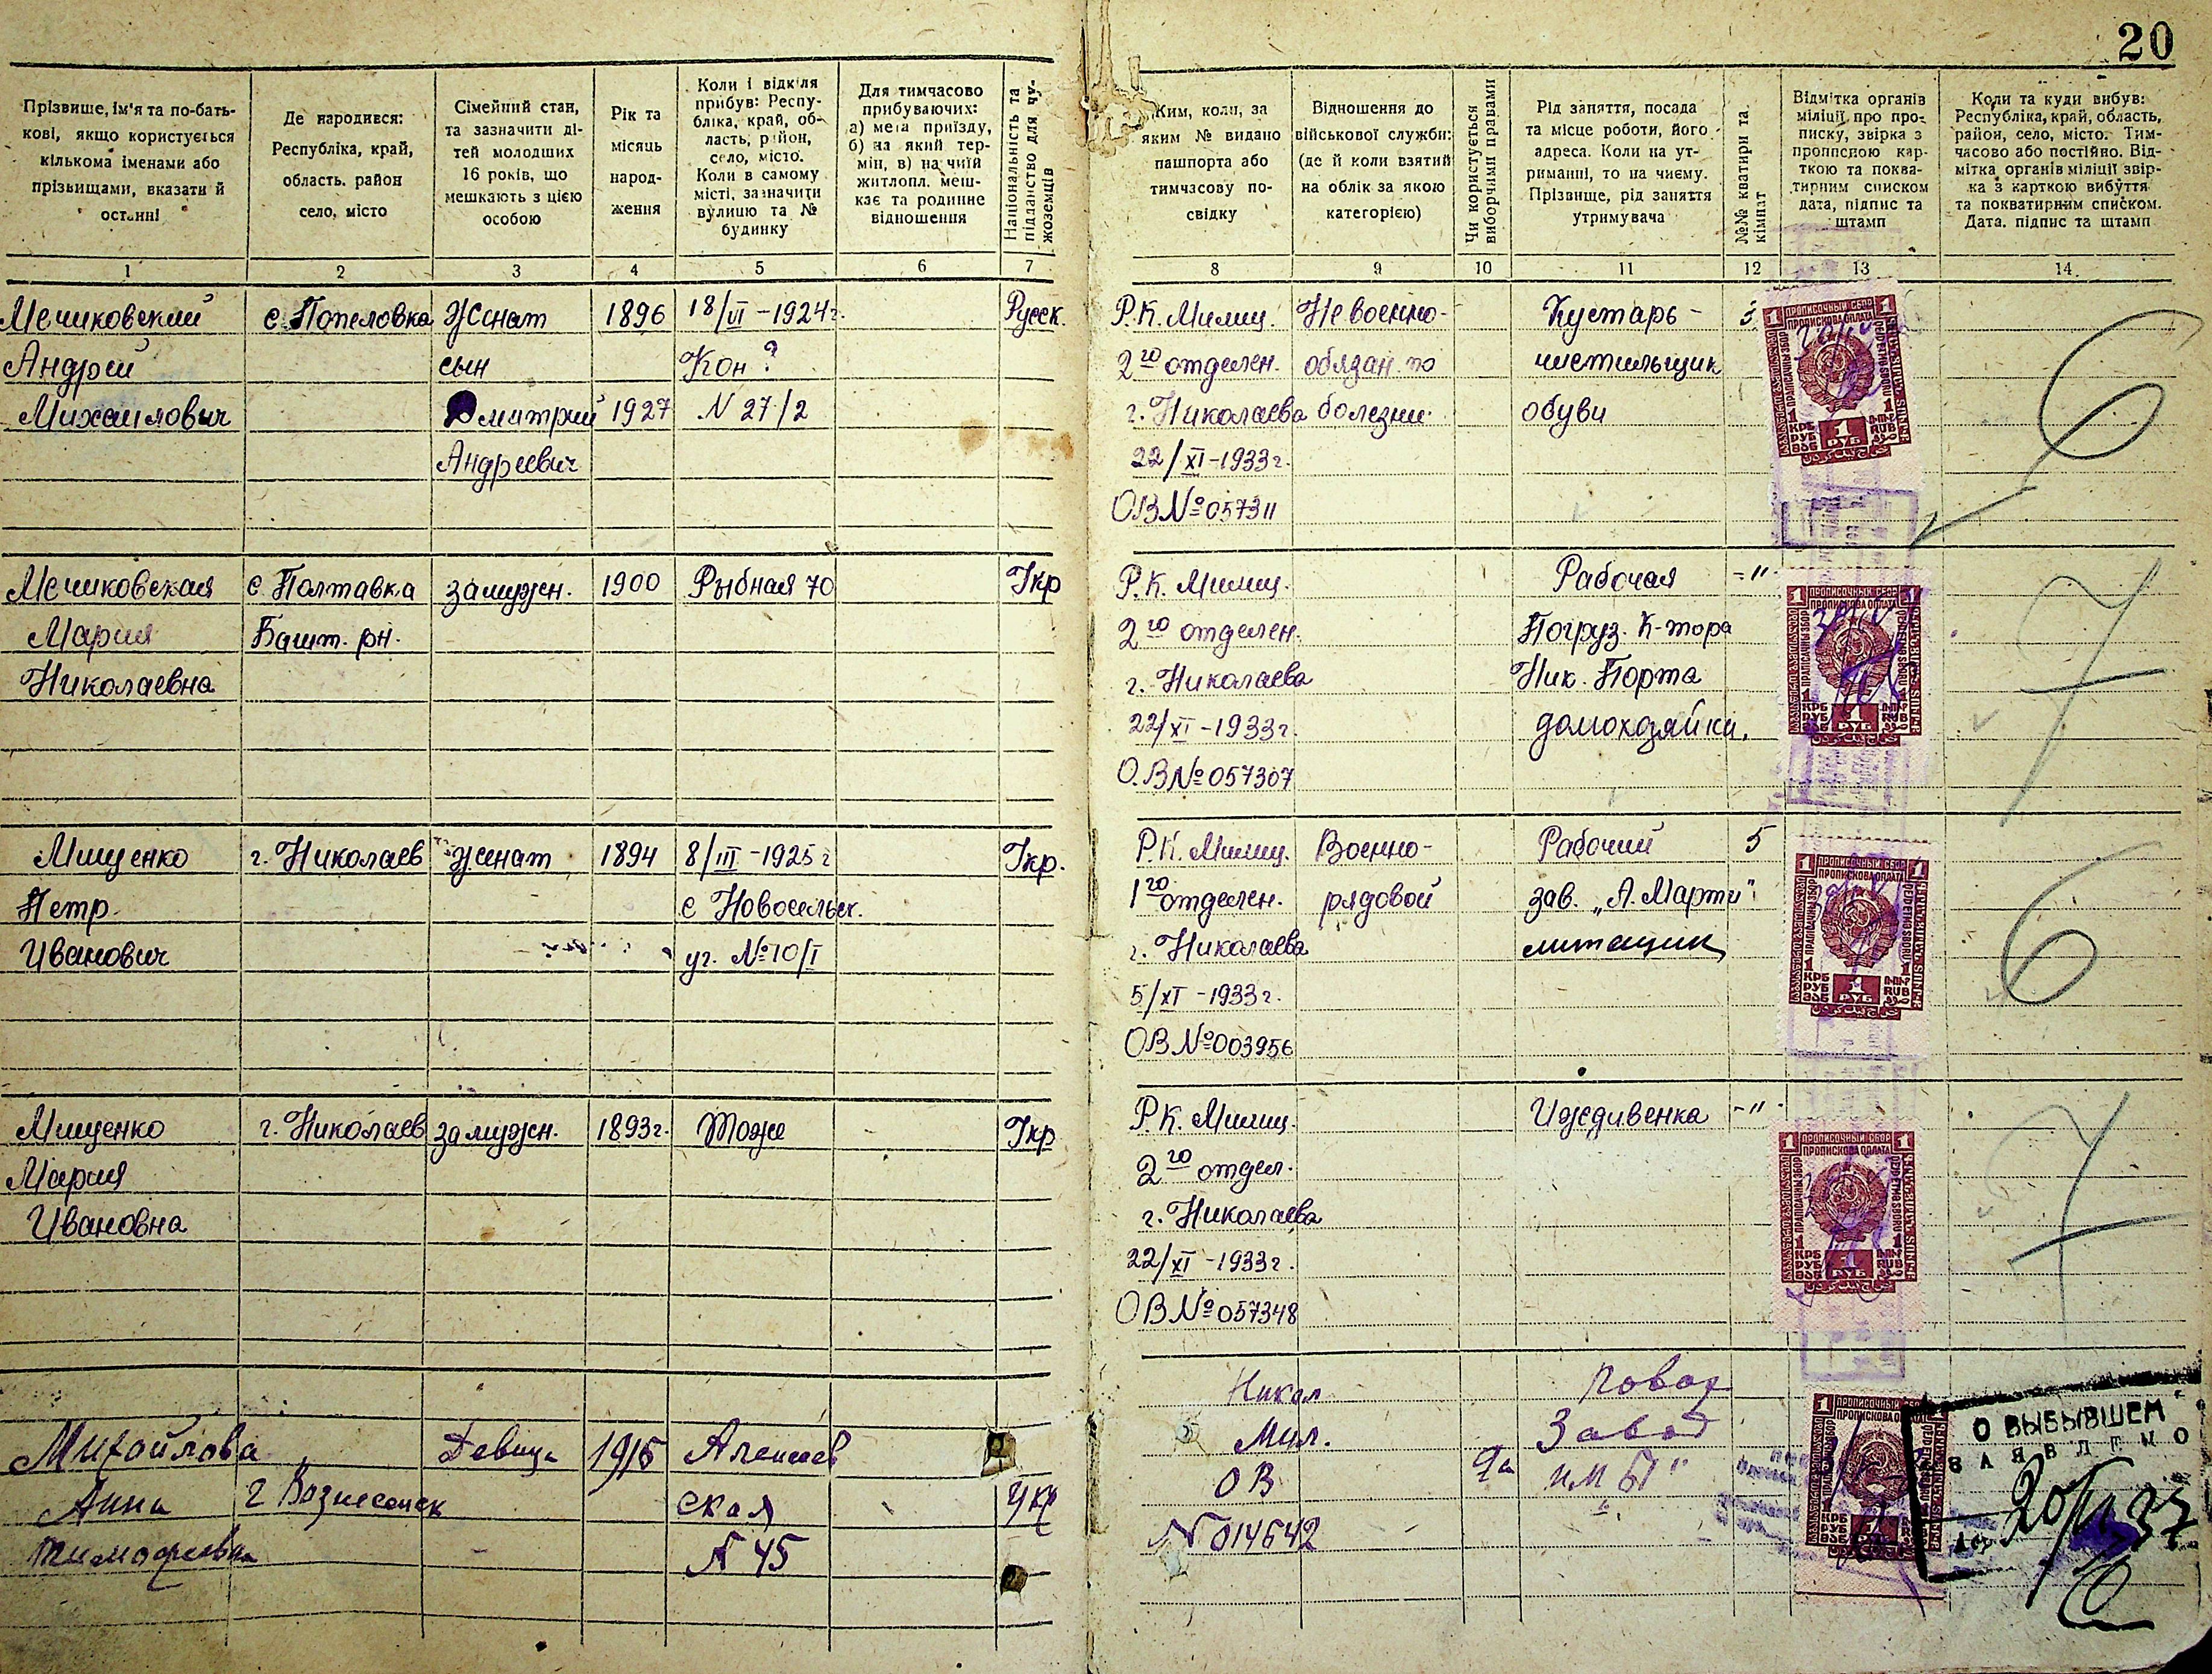 20
Прізвище, ім'я та по-бать-
кові, якщо користується
кількома іменами або
прізвищами, вказати й
останні
Де народився:
Республіка, край,
область, район
село, місто
Сімейний стан,
та зазначити ді-
тей молодших
16 років, що
мешкають з цією
особою
Рік та
місяць
народ-
ження
Коли і відкіля
прибув: Респу-
бліка, край, об-
ласть, район,
село, місто.
Коли в самому
місті, зазначити
вулицю та №
будинку
Для тимчасово
прибуваючих:
а) мета приїзду,
б) на який тер-
мін, в) на чиїй
житлопл. меш-
кає та родинне
відношення
Національність та
підданство для чу-
жоземців
Ким, коли, за
яким № видано
пашпорта або
тимчасову по-
свідку
Відношення до
військової служби:
(де й коли взятий
на облік за якою
категорією)
Чи користується
виборчими правами
Рід заняття, посада
та місце роботи, його
адреса. Коли на ут-
риманні, то на чиєму.
Прізвище, рід заняття
утримувача
№№ кватири та
кімнат
Відмітка органів
міліції про про-
писку, звірка з
прописною кар-
ткою та поква-
тирним списком
дата, підпис та
штамп
Коли та куди вибув:
Республіка, край, область,
район, село, місто. Тим-
часово або постійно. Від-
мітка органів міліції звір-
ка з карткою вибуття
та покватирним списком.
Дата, підпис та штамп
1 2 3 4 5 6 7 8 9 10 11 12 13 14
Мечиковский с. Попеловка Женат 1896 18/VI - 1924г. Русск. Р.К. Милиц. Невоенно- Кустарь - 3
Андрей сын Кон ? 2го отделен. обязан. по чистильщик
Михайлович Дмитрий 1927 N 27/2 г. Николаева болезни обуви
Андреевич 22/XI - 1933г.
ОВ № 057311
6
Мечиковская с. Полтавка замужн. 1900 Рыбная 70 Укр Р.К. Милиц. Рабочая - " -
Мария Башт. рн. 2го отделен. Погруз. К-тора
Николаевна г. Николаева Ник. Порта
22/XI - 1933г. домохозяйка.
О.В № 057307
7
Мищенко г. Николаев женат 1894 8/III - 1925г Укр. Р.К. Милиц. Военно- Рабочий 5
Петр с Новосельск. 1го отделен. рядовой зав. „А. Марти"
Иванович уг. № 10/I г. Николаева литейщик
5/XI - 1933г.
ОВ № 003956
6
Мищенко г. Николаев замужн. 1893г. Тоже Укр Р.К. Милиц. Иждивенка - " -
Мария 2го отдел.
Ивановна г. Николаева
22/XI - 1933г.
ОВ № 057348
7
Никол Повар
Михайлова Девица 1915 Алексеев Мил. Завод
Анна г Вознесенск ская Укр ОВ да им 61"
Тимофеевна N 45 N 014642
1 ПРОПИСОЧНЫЙ СБОР 1
ПРОПИСКОВА ОПЛАТА
КРБ
РУБ 1 РУБ RUB
1 ПРОПИСОЧНЫЙ СБОР 1
ПРОПИСКОВА ОПЛАТА
КРБ
РУБ 1 РУБ RUB
1 ПРОПИСОЧНЫЙ СБОР 1
ПРОПИСКОВА ОПЛАТА
КРБ
РУБ 1 РУБ RUB
1 ПРОПИСОЧНЫЙ СБОР 1
ПРОПИСКОВА ОПЛАТА
КРБ
РУБ 1 РУБ RUB
1 ПРОПИСОЧНЫЙ СБОР
ПРОПИСКОВА ОПЛАТА
КРБ
РУБ
О ВЫБЫВШЕМ
ЗАЯВЛЕНО